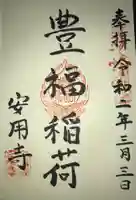 奉拝 令和二年三月三日
豊福稲荷
安用寺